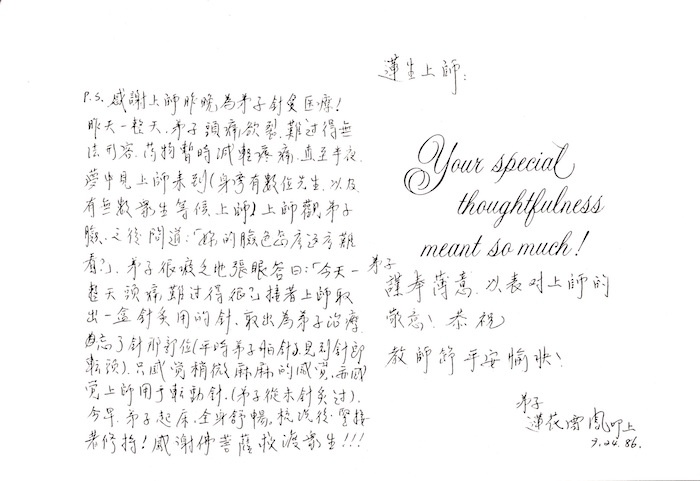 蓮生上師：
Your special
thoughtfulness
meant so much!
弟子
謹奉薄意，以表对上師的
敬意！恭祝
教師節平安愉快！
弟子
蓮花雪鳳叩上
9.24.86.
P.S. 感謝上師昨晚為弟子針灸医療！
昨天一整天，弟子頭痛欲裂，難过得無
法形容，药物暫時減輕疼痛，直至半夜，
夢中見上師来到(身旁有數位先生，以及
有無數衆生等候上師)上師觀弟子
臉，之後問道：「妳的臉色怎麼这麼難
看？」弟子很疲乏地張眼答曰：「今天一
整天頭痛難过得很」接著上師取
出一盒針灸用的針，取出為弟子治療
忘了針那部位(平時弟子怕針，見到針即
転頭)，只感觉稍微麻麻的感觉，亦感
觉上師用手転動針，(弟子從未針灸过)，
今早，弟子起床，全身舒暢，梳洗後，緊接
著修持！感謝佛菩薩救渡衆生！！！